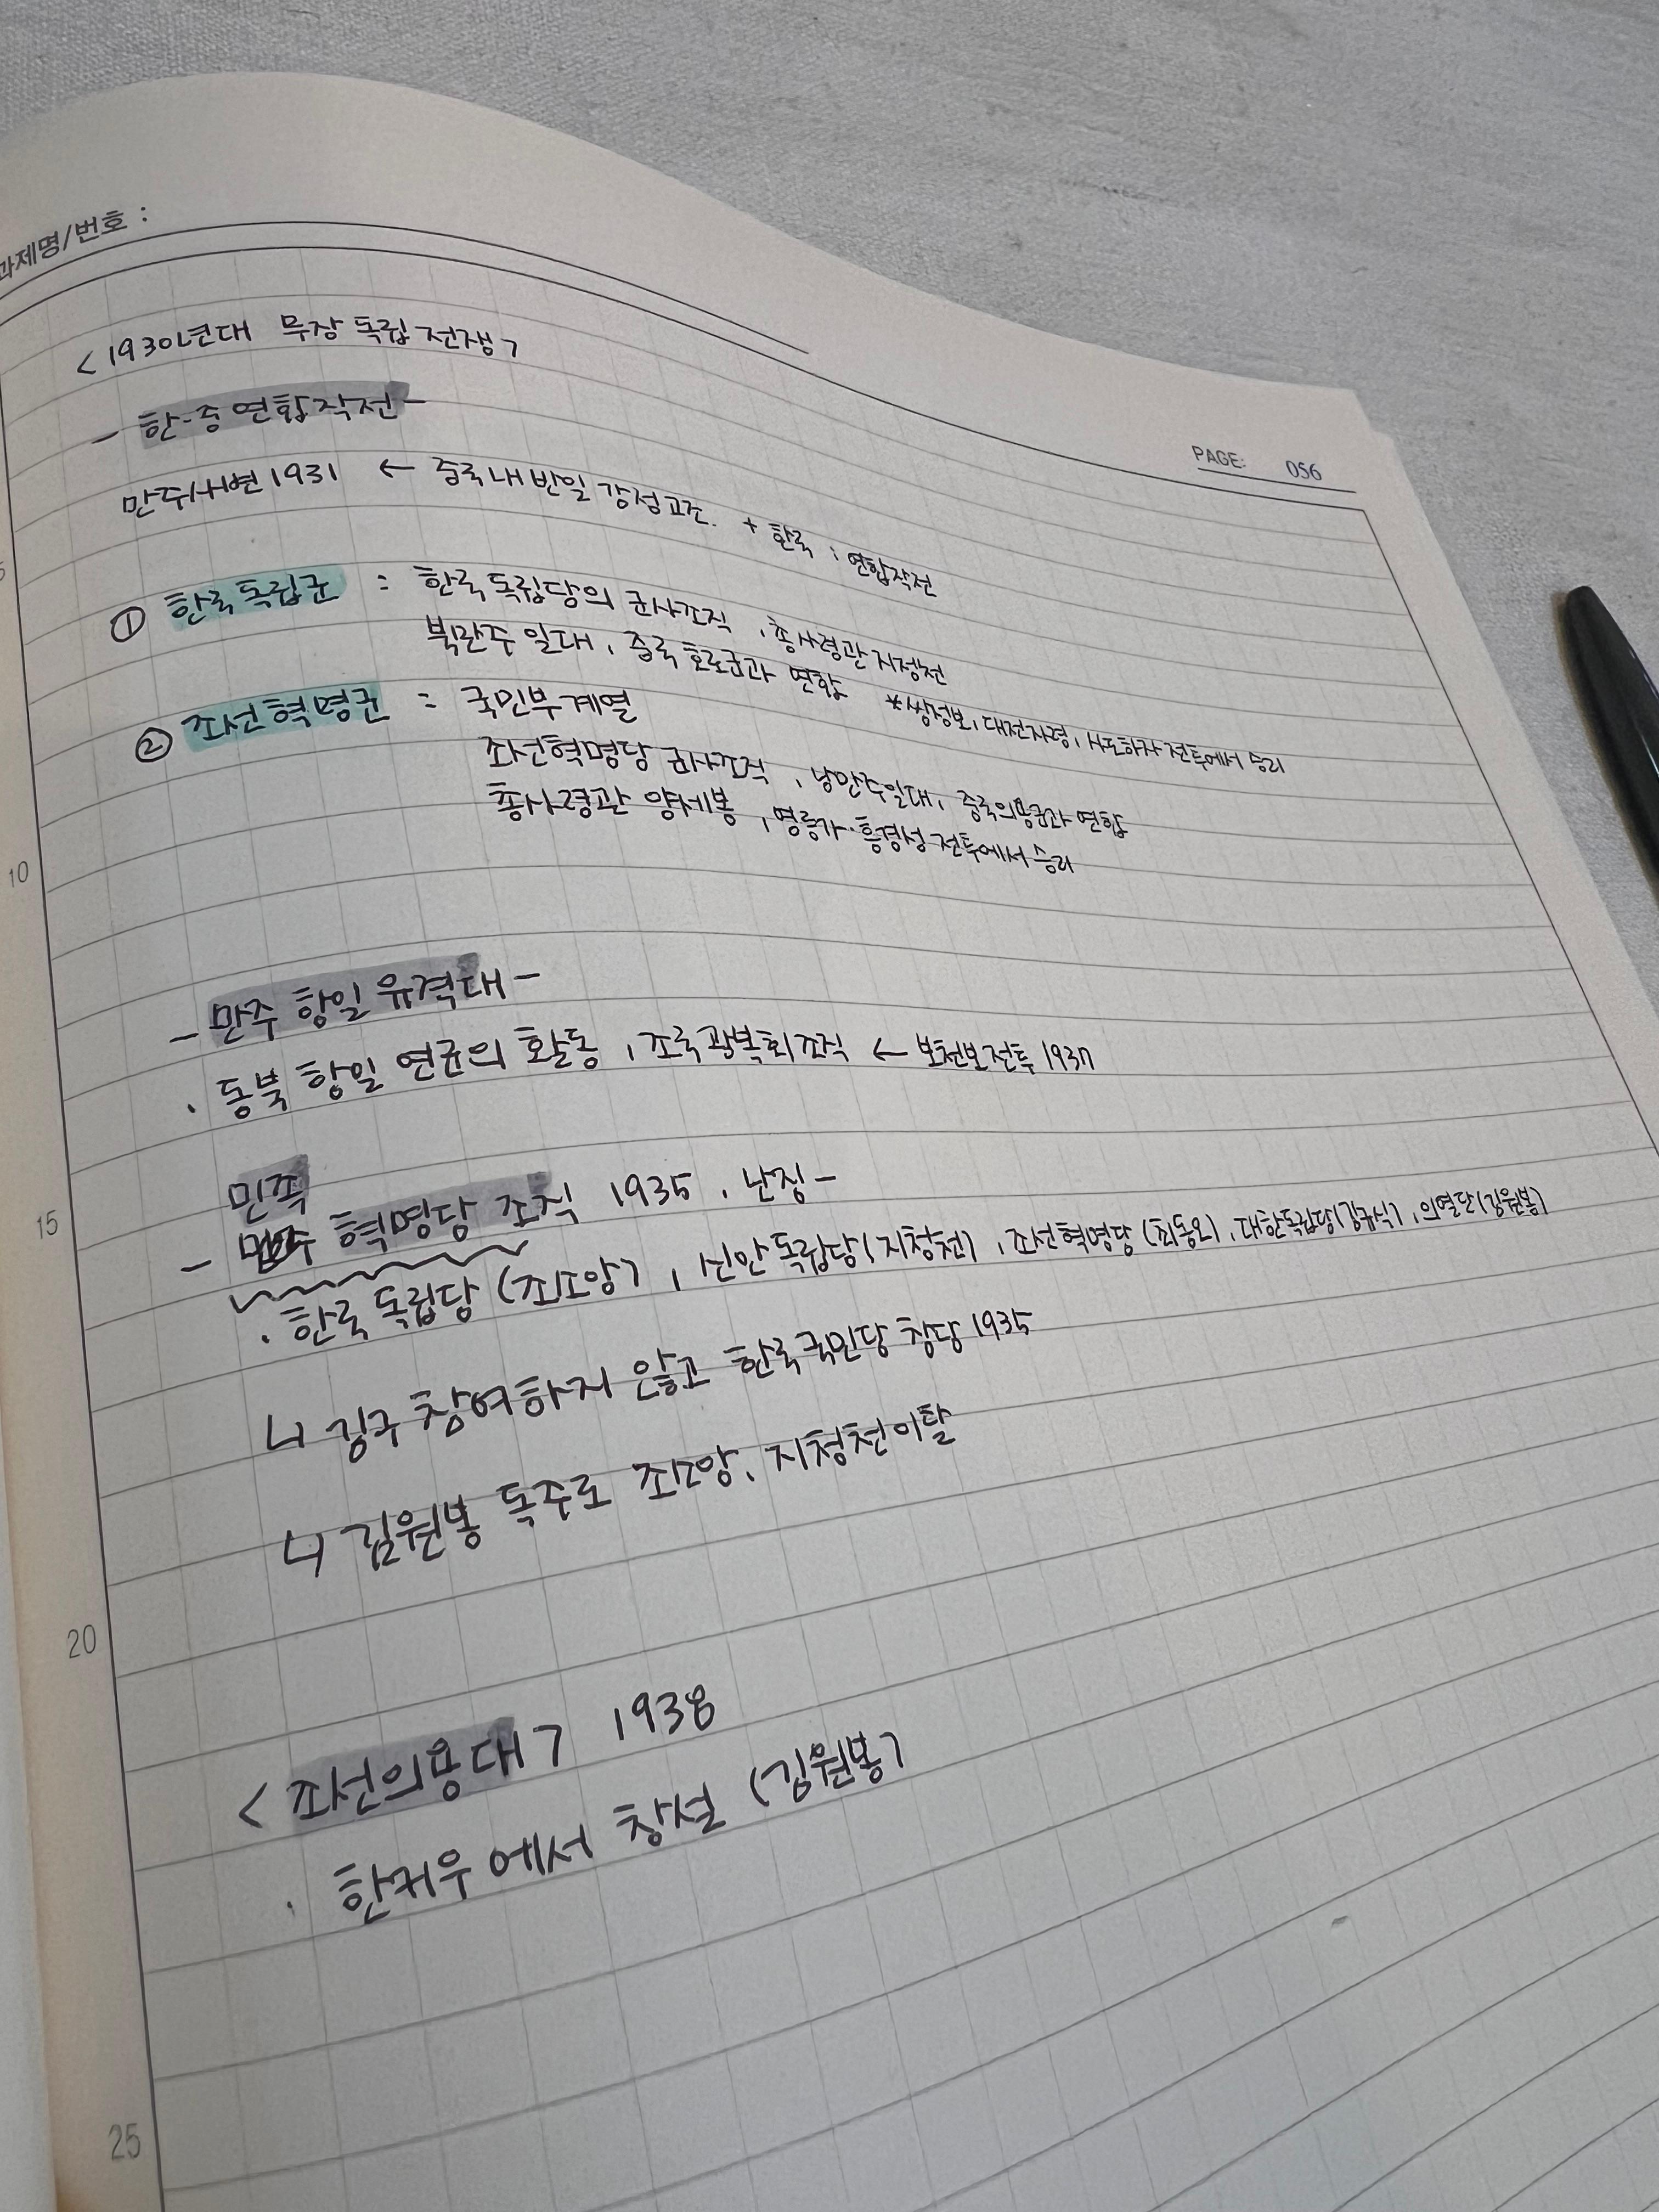 과제명/번호 :
PAGE: 056
<1930년대 무장 독립 전쟁>
- 한-중 연합작전 -
만주사변 1931 ← 중국 내 반일 감정고조. + 한국 : 연합작전
① 한국독립군 : 한국독립당의 군사조직, 총사령관 지청천
북만주 일대, 중국 호로군과 연합 *쌍성보, 대전자령, 사도하자 전투에서 승리
② 조선혁명군 : 국민부 계열
조선혁명당 군사조직, 남만주일대, 중국의용군과 연합
총사령관 양세봉, 영릉가·흥경성 전투에서 승리
10
- 만주 항일 유격대 -
· 동북 항일 연군의 활동, 조국광복회 조직 ← 보천보전투 1937
민족
15
- 혁명당 조직 1935, 난징 -
· 한국 독립당 (조소앙), 신한독립당(지청천), 조선혁명당 (최동오), 대한독립당(김규식), 의열단(김원봉)
ㄴ 김구 참여하지 않고 한국국민당 창당 1935
ㄴ 김원봉 독주로 조소앙, 지청천 이탈
20
<조선의용대> 1938
· 한커우에서 창설 (김원봉)
25